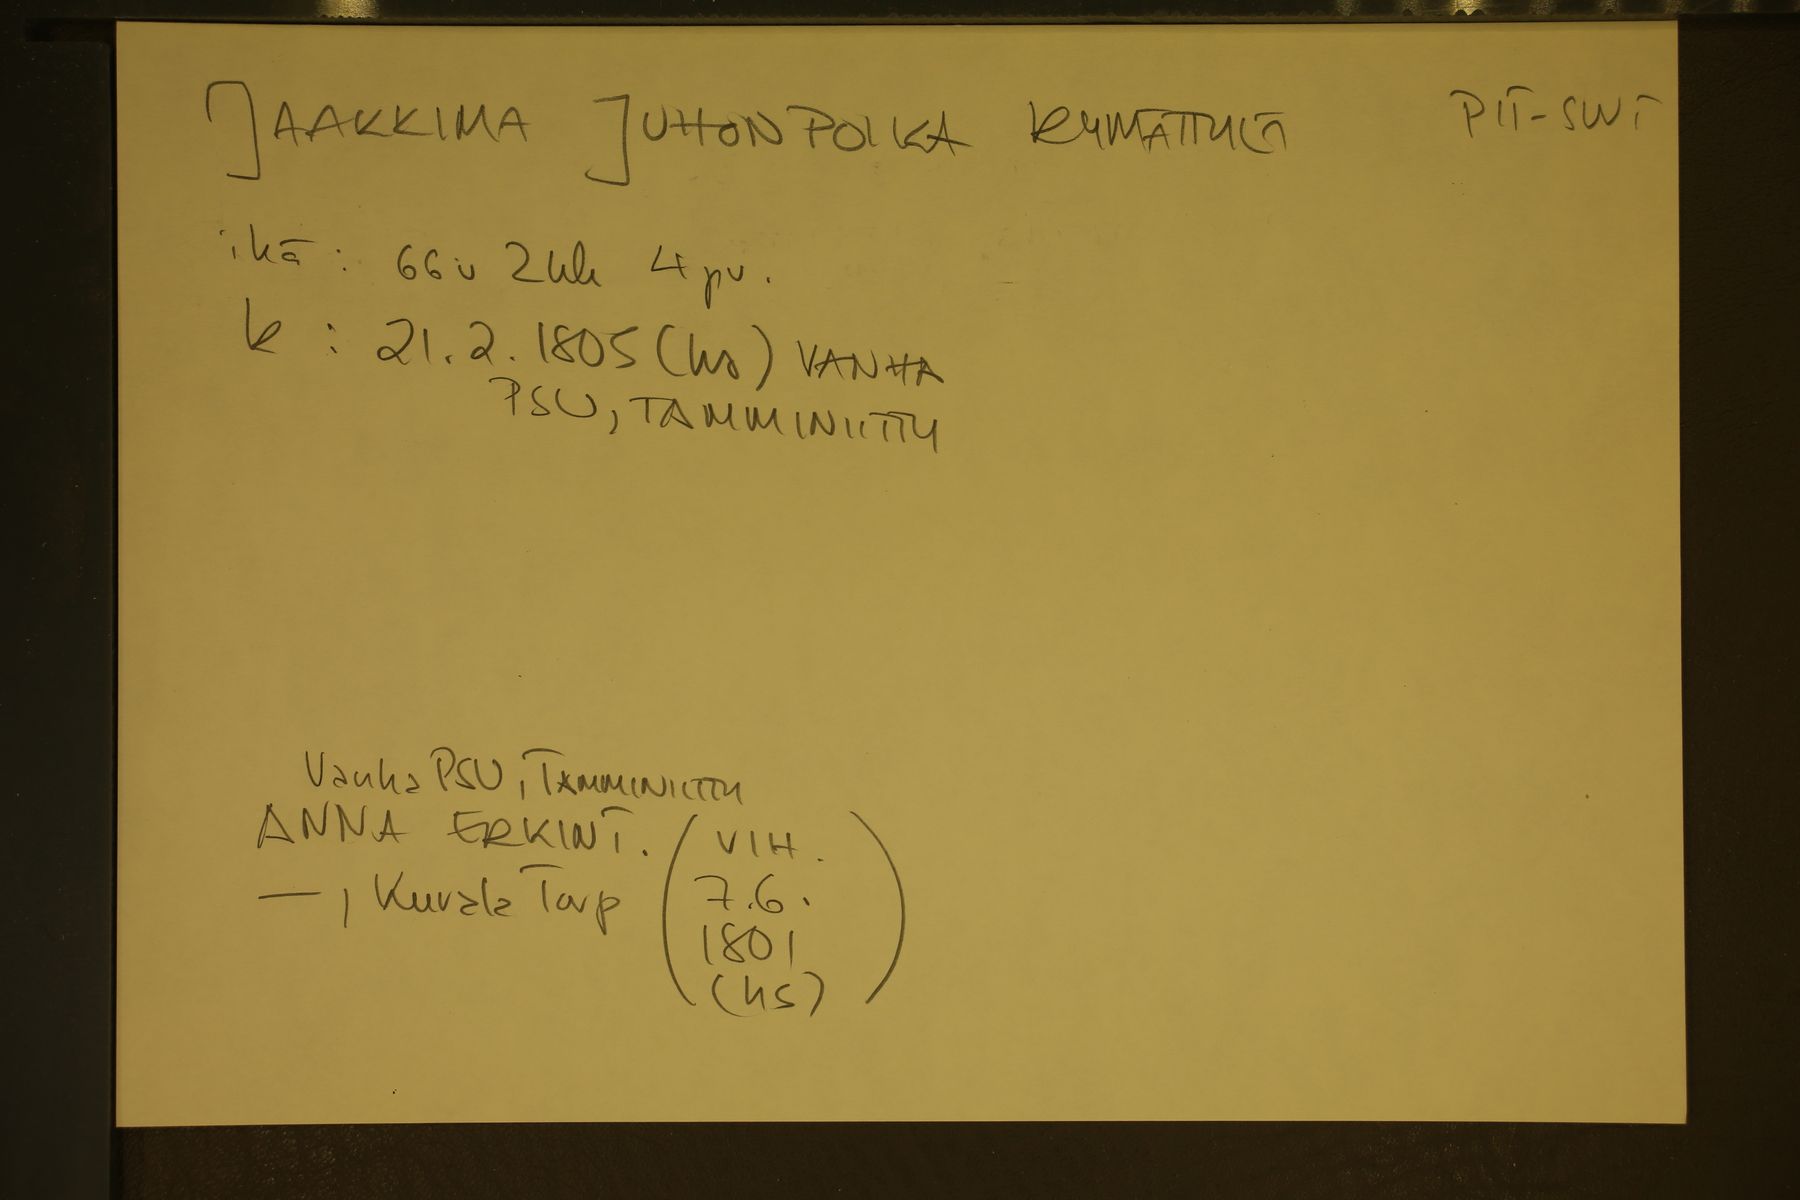 JAAKKIMA JUHONPOIKA RYMÄTTYLÄ PIT-SUNT
ikä: 66 v 2 kk 4 pv.
k : 21.2.1805 (hs) VANHA
PSU, TAMMINIITTY
Vanha PSU, TAMMINIITTY
ANNA ERKINT. (VIH.
—, Kuvala Torp 7.6.
1801
(hs))